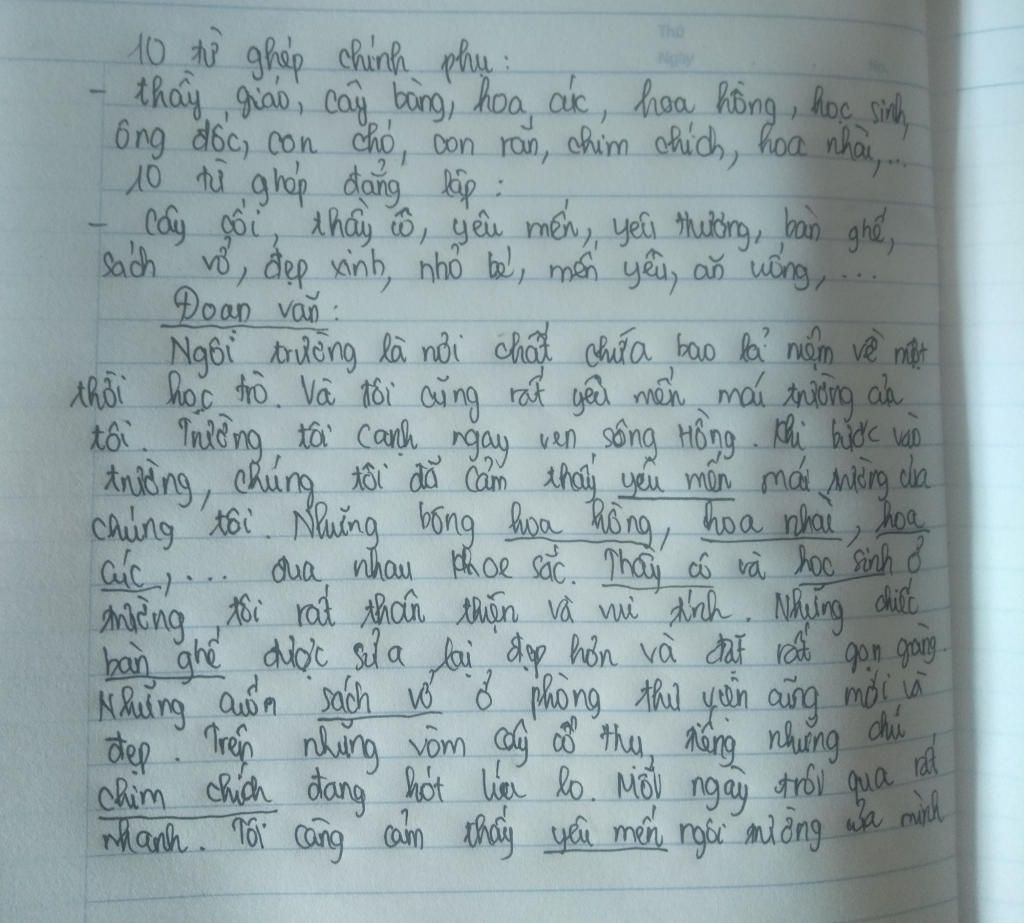 Thứ
Ngày
No.
10 từ ghép chính phụ:
- thầy giáo, cây bàng, hoa cúc, hoa hồng, học sinh,
ông đốc, con chó, con rắn, chim chích, hoa nhài,...
10 từ ghép đẳng lập:
- cây cối, thầy cô, yêu mến, yêu thương, bàn ghế,
sách vở, đẹp xinh, nhỏ bé, mến yêu, ăn uống,...
Đoạn văn:
Ngôi trường là nơi chất chứa bao kỉ niệm về một
thời học trò. Và tôi cũng rất yêu mến mái trường của
tôi. Trường tôi cạnh ngay ven sông Hồng. Khi bước vào
trường, chúng tôi đã cảm thấy yêu mến mái trường của
chúng tôi. Những bông hoa hồng, hoa nhài, hoa
cúc,... đua nhau khoe sắc. Thầy cô và học sinh ở
trường tôi rất thân thiện và vui tính. Những chiếc
bàn ghế được sửa lại đẹp hơn và đặt rất gọn gàng.
Những cuốn sách vở ở phòng thư viện cũng mới và
đẹp. Trên những vòm cây cổ thụ, tiếng những chú
chim chích đang hót líu lo. Mỗi ngày trôi qua rất
nhanh. Tôi càng cảm thấy yêu mến ngôi trường của mình